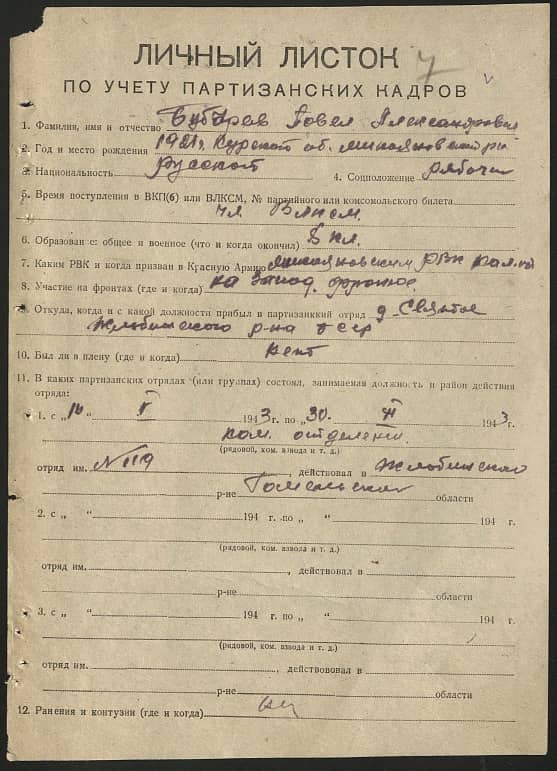 ЛИЧНЫЙ ЛИСТОК 7
ПО УЧЕТУ ПАРТИЗАНСКИХ КАДРОВ
1. Фамилия, имя и отчество Бубырев Павел Александрович
2. Год и место рождения 1921г. Курской об.
3. Национальность Русской 4. Соцположение рабочий
5. Время поступления в ВКП(б) или ВЛКСМ, № партийного или комсомольского билета
чл ВЛКСМ.
6. Образование: общее и военное (что и когда окончил) 5 кл.
7. Каким РВК и когда призван в Красную Армию РВК
8. Участие на фронтах (где и когда) на Запад. фронте.
9. Откуда, когда и с какой должности прибыл в партизанский отряд д. Святое
Жлобинского р-на БССР
10. Был ли в плену (где и когда) нет
11. В каких партизанских отрядах (или группах) состоял, занимаемая должность и район действия
отряда:
1. с „ 16 “ V 1943 г. по „ 30. “ XI 1943 г.
ком. отделения.
(рядовой, ком. взвода и т. д.)
отряд им. № 119, действовал в Жлобинском
р-не Гомельской области
2. с „ “ 194 г. по „ “ 194 г.
(рядовой, ком. взвода и т. д.)
отряд им. , действовал в
р-не области
3. с „ “ 194 г. по „ “ 194 г.
(рядовой, ком. взвода и т. д.)
отряд им. , действовал в
р-не области
12. Ранения и контузии (где и когда) нет